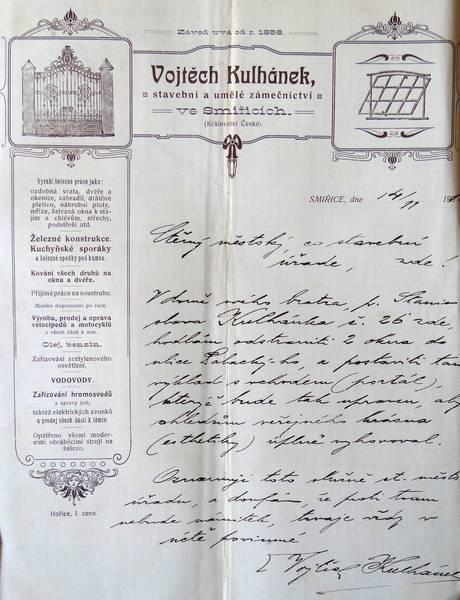 Závod trvá od r. 1856.
Vojtěch Kulhánek,
stavební a umělé zámečnictví
ve Smiřicích.
(Království České).
Vyrábí železné práce jako:
ozdobná vrata, dvéře a
okenice, zábradlí, drátěné
pletivo, náhrobní ploty,
mříže, železná okna k stá-
jím a chlévům, střechy,
podstřeší atd.
Železné konstrukce.
Kuchyňské sporáky
a železné spodky pod kamna.
Kování všech druhů na
okna a dvéře.
Přijímá práce na soustruhu.
Mnoho doporučení po ruce.
Výroba, prodej a oprava
velocipedů a motocyklů
a všech částí k nim.
Olej, benzin.
Zařizování acetylenového
osvětlení.
VODOVODY.
Zařizování hromosvodů
a opravy jich,
taktéž elektrických zvonků
a prodej všech částí k těmže
Opatřeno všemi moder-
ními obráběcími stroji na
železo.
Hořice, I. cena.
SMIŘICE, dne 14/11 19
Slavný městský, co stavební
úřade, zde!
V domě mého bratra, p. Stanis-
slava Kulhánka č. 26 zde,
hodlám odstraniti 2 okna do
ulice Palackýho, a postaviti tam
výklad s vchodem (portál),
kterýž bude tak upraven, aby
ohledům veřejného krásna
(esthetiky) úplně vyhovoval.
Oznamuji toto slušně sl. měst.
úřadu, a doufám, že proti tomu
nebude námitek, trvaje vždy v
úctě povinné
Vojtěch Kulhánek